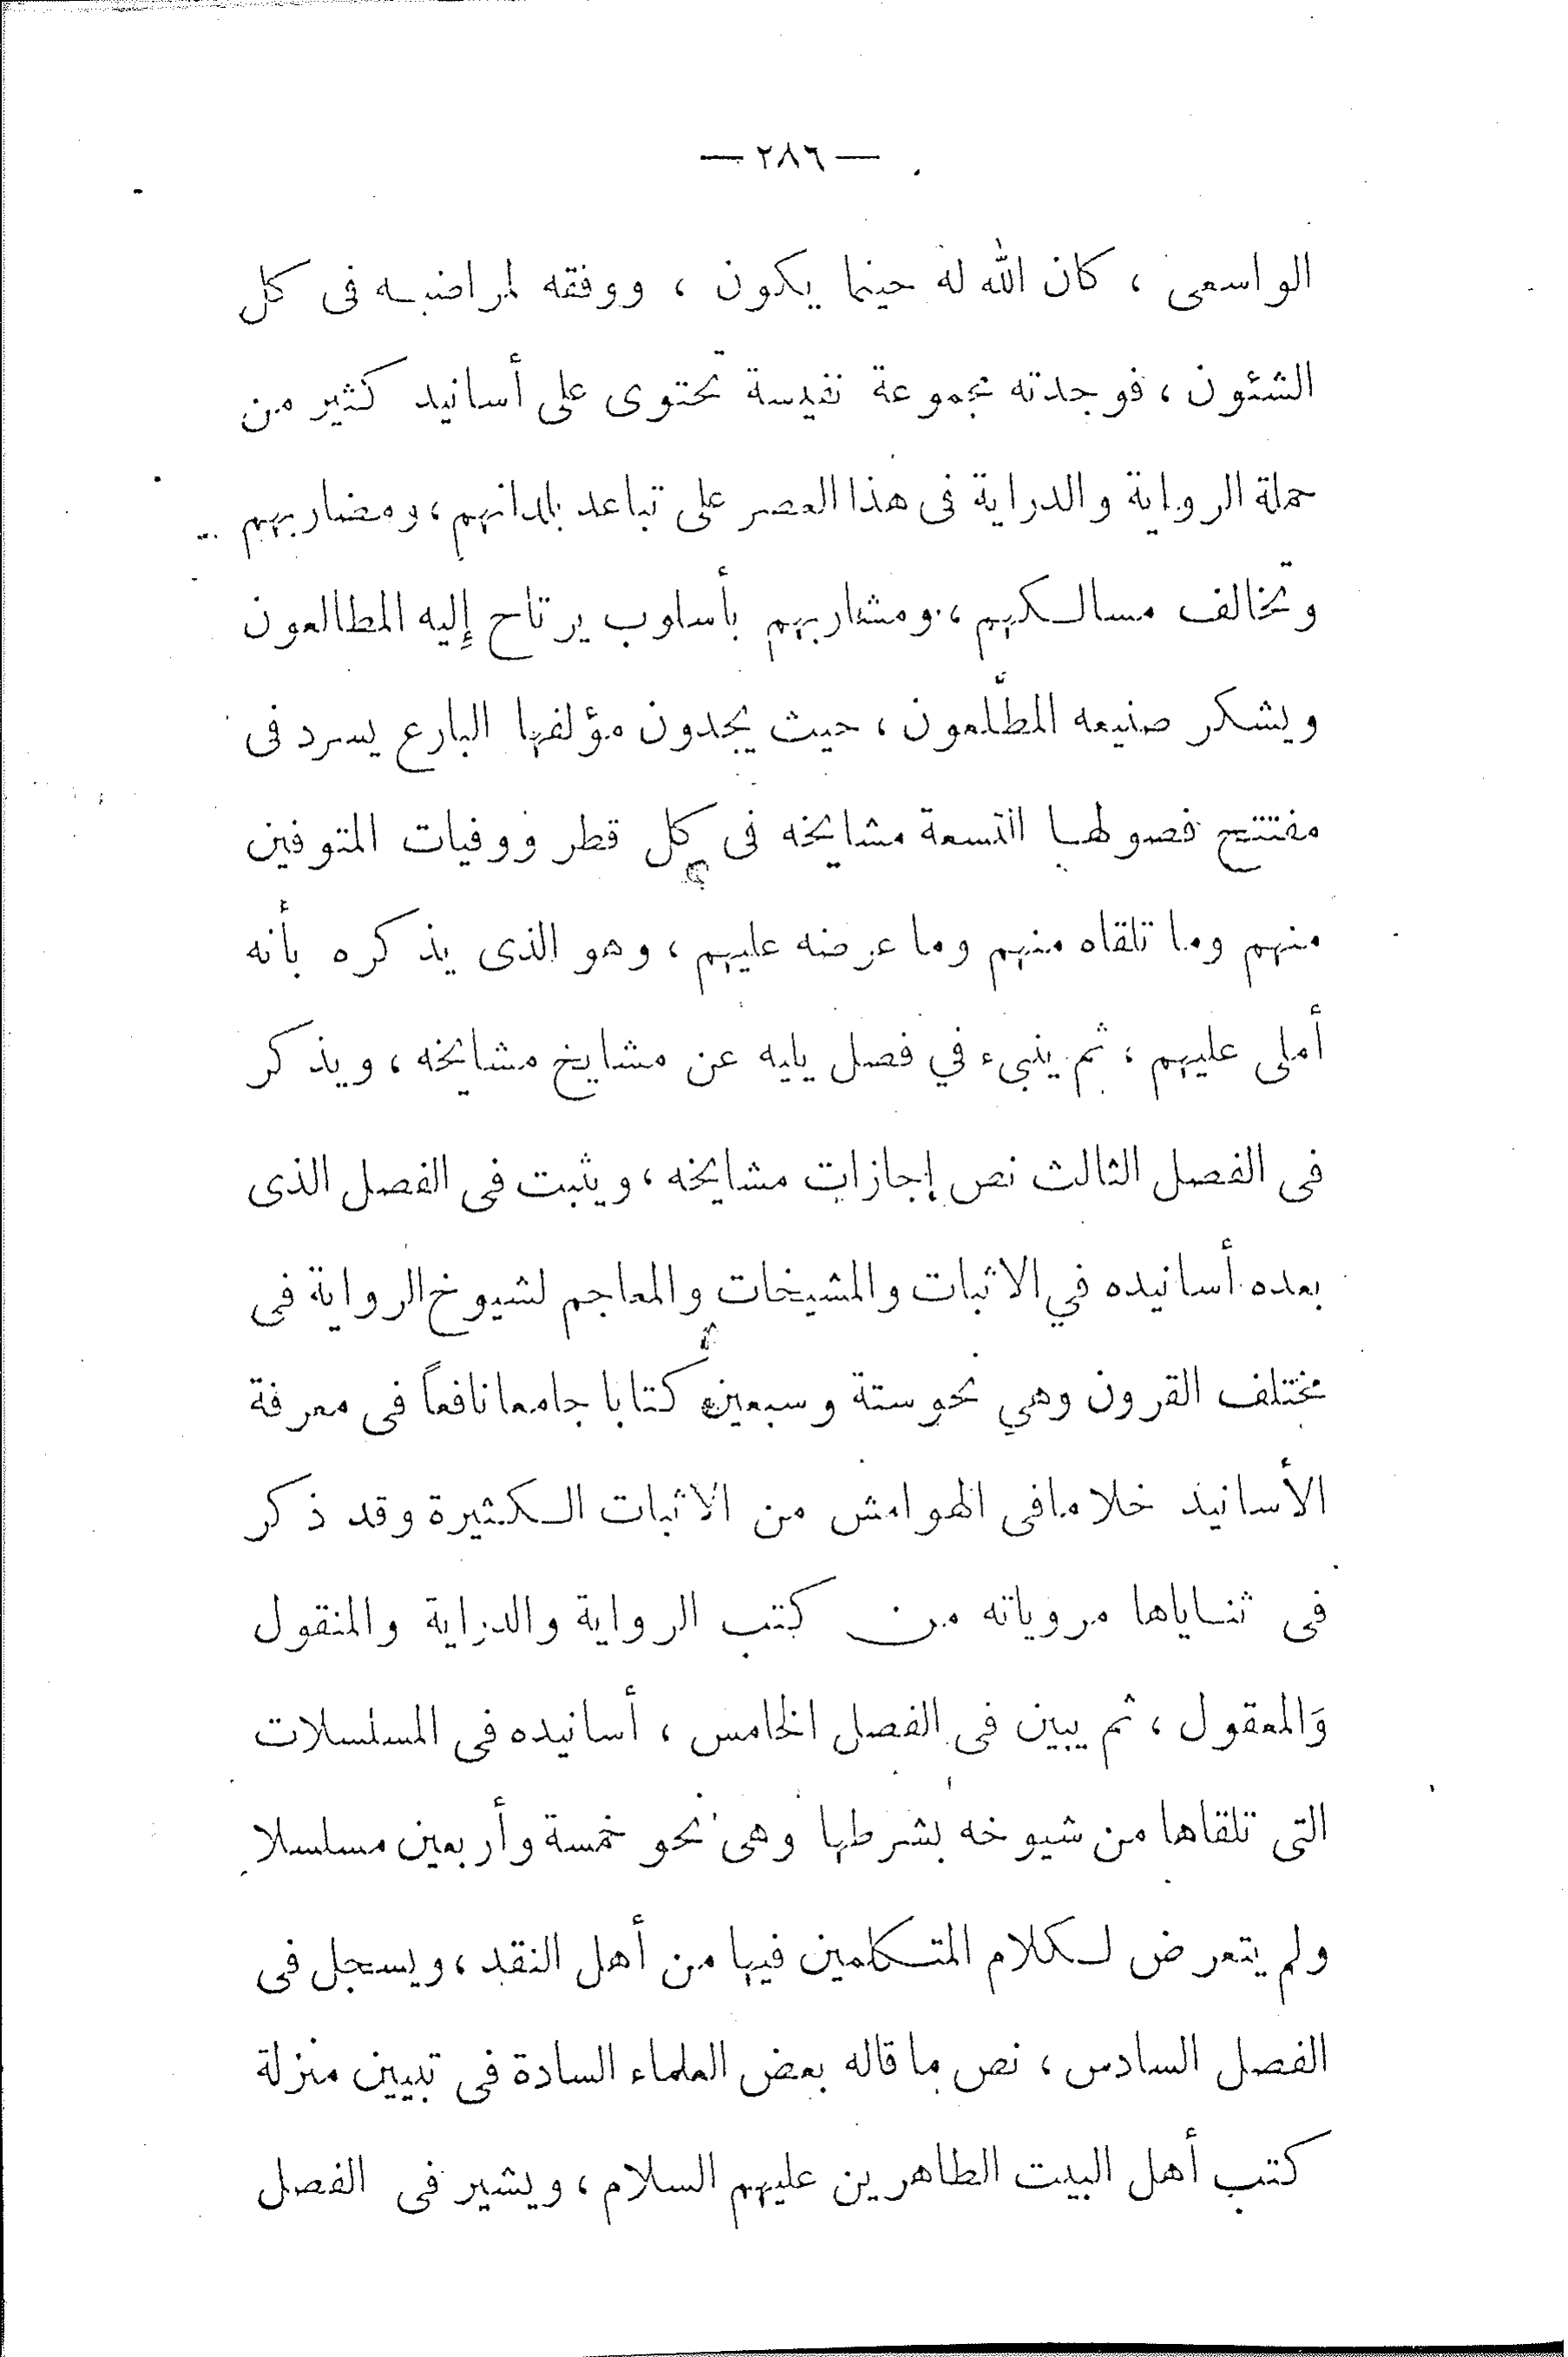 — ٢٨٦ —
الواسعى ، كان الله له حينما يكون ، ووفقه لمراضيه فى كل
الشئون ، فوجدته مجموعة نفيسة تحتوى على أسانيد كثير من
حملة الرواية والدراية فى هذا العصر على تباعد بلدانهم ، ومضاربهم
وتخالف مسالكهم ، ومشاربهم بأسلوب يرتاح إليه المطالعون
ويشكر صنيعه المطَّلعون ، حيث يجدون مؤلفها البارع يسرد فى
مفتتح فصولها التسعة مشايخه فى كل قطر ووفيات المتوفين
منهم وما تلقاه منهم وما عرضه عليهم ، وهو الذى يذكره بأنه
أملى عليهم ، ثم ينبىء في فصل يليه عن مشايخ مشايخه ، ويذكر
فى الفصل الثالث نص إجازات مشايخه ، ويثبت فى الفصل الذى
بعده أسانيده في الاثبات والمشيخات والمعاجم لشيوخ الرواية فى
مختلف القرون وهي نحو ستة وسبعين كتابا جامعا نافعاً فى معرفة
الأسانيد خلا ما فى الهوامش من الاثبات الكثيرة وقد ذكر
فى ثناياها مروياته من كتب الرواية والدراية والمنقول
وَالمعقول ، ثم يبين فى الفصل الخامس ، أسانيده فى المسلسلات
التى تلقاها من شيوخه بشرطها وهى نحو خمسة وأربعين مسلسلا
ولم يتعرض لكلام المتكلمين فيها من أهل النقد ، ويسجل فى
الفصل السادس ، نص ما قاله بعض العلماء السادة فى تبيين منزلة
كتب أهل البيت الطاهرين عليهم السلام ، ويشير فى الفصل